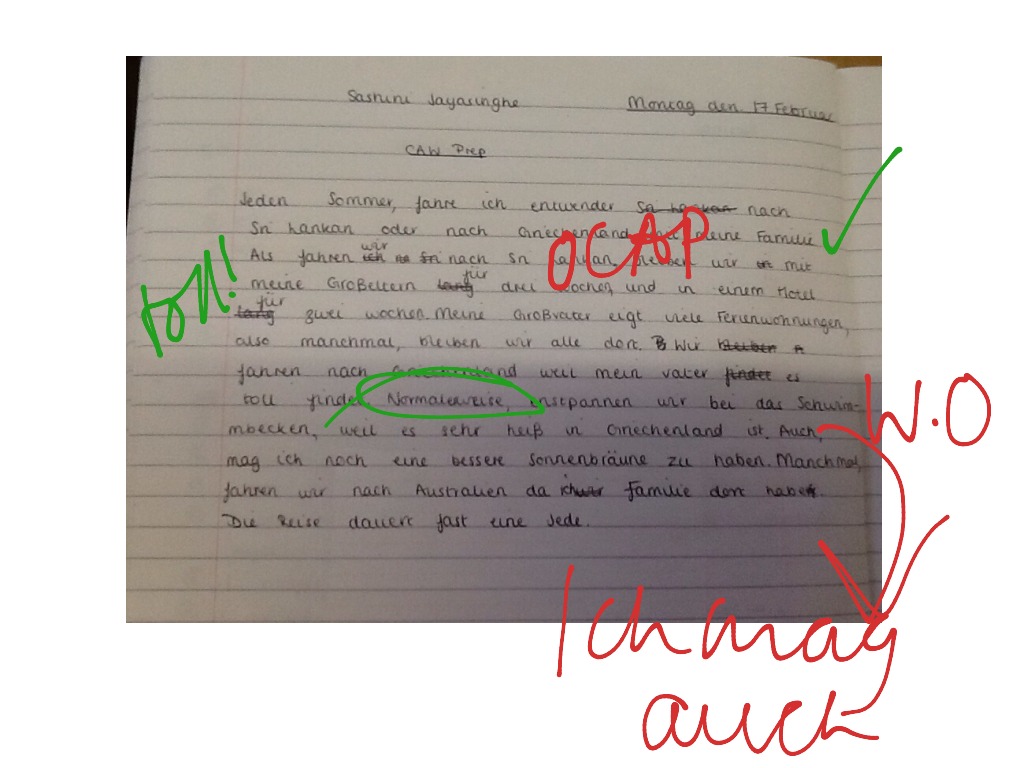 Sashini Jayasinghe Montag den 17 Februar
CAW Prep
Jeden Sommer, fahre ich entwender Sri hankan nach
Sri hankan oder nach Griechenland meine Familie
Als fahren wir nach Sri hankan. bleiben wir mit
meine Großeltern für drei wochen, und in einem Hotel
für zwei wochen. Meine Großvater eigt viele Ferienwohnungen,
also manchmal, bleiben wir alle dort. Wir bleiben
fahren nach Griechenland weil mein vater findet es
toll findet. Normaleweise, entspannen wir bei das Schwim-
mbecken, weil es sehr heiß in Griechenland ist. Auch,
mag ich noch eine bessere Sonnenbräune zu haben. Manchmal,
fahren wir nach Australien da familie dort haben.
Die Reise dauert fast eine Jede.
toll!
OCAP
W.O
Ich mag
auch